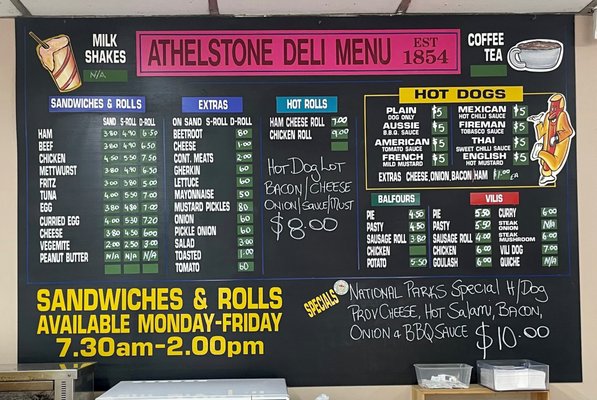 MILK SHAKES
N/A
ATHELSTONE DELI MENU EST 1854
COFFEE TEA
SANDWICHES & ROLLS
SAND S-ROLL D-ROLL
HAM 3.80 4.90 6.50
BEEF 3.80 4.90 6.50
CHICKEN 4.50 5.50 7.50
METTWURST
FRITZ
TUNA
EGG
CURRIED EGG
CHEESE
VEGEMITE
PEANUT BUTTER
EXTRAS
ON SAND S-ROLL D-ROLL
BEETROOT 80
CHEESE 1.00
CONT. MEATS 2.00
GHERKIN 60
LETTUCE 60
MAYONNAISE 50
MUSTARD PICKLES 80
ONION 60
PICKLE ONION 60
SALAD 3.00
TOASTED 1.00
TOMATO 60
HOT ROLLS
HAM CHEESE ROLL 7.00
CHICKEN ROLL
HOT DOG LOT
BACON/CHEESE
ONION/SAUCE/MUST
$8.00
HOT DOGS
PLAIN $5
DOG ONLY
AUSSIE $5
B.B.Q. SAUCE
AMERICAN $5
TOMATO SAUCE
FRENCH $5
MILD MUSTARD
MEXICAN $5
HOT CHILLI SAUCE
FIREMAN $5
TOBASCO SAUCE
THAI $5
SWEET CHILLI SAUCE
ENGLISH $5
HOT MUSTARD
EXTRAS CHEESE, ONION, BACON HAM $1.00 EA
BALFOURS
PIE 4.50
PASTY 4.50
SAUSAGE ROLL 3.80
CHICKEN
POTATO 5.50
VILIS
PIE 5.50
PASTY 5.50
SAUSAGE ROLL 4.00
CHICKEN 6.00
GOULASH 6.00
CURRY 6.00
STEAK ONION
STEAK MUSHROOM 6.00
VILI DOG 7.00
QUICHE N/A
SANDWICHES & ROLLS
AVAILABLE MONDAY-FRIDAY
7.30am-2.00pm
SPECIALS
NATIONAL PARKS SPECIAL H/DOG
PROV CHEESE, HOT SALAMI, BACON,
ONION & BBQ SAUCE $10.00